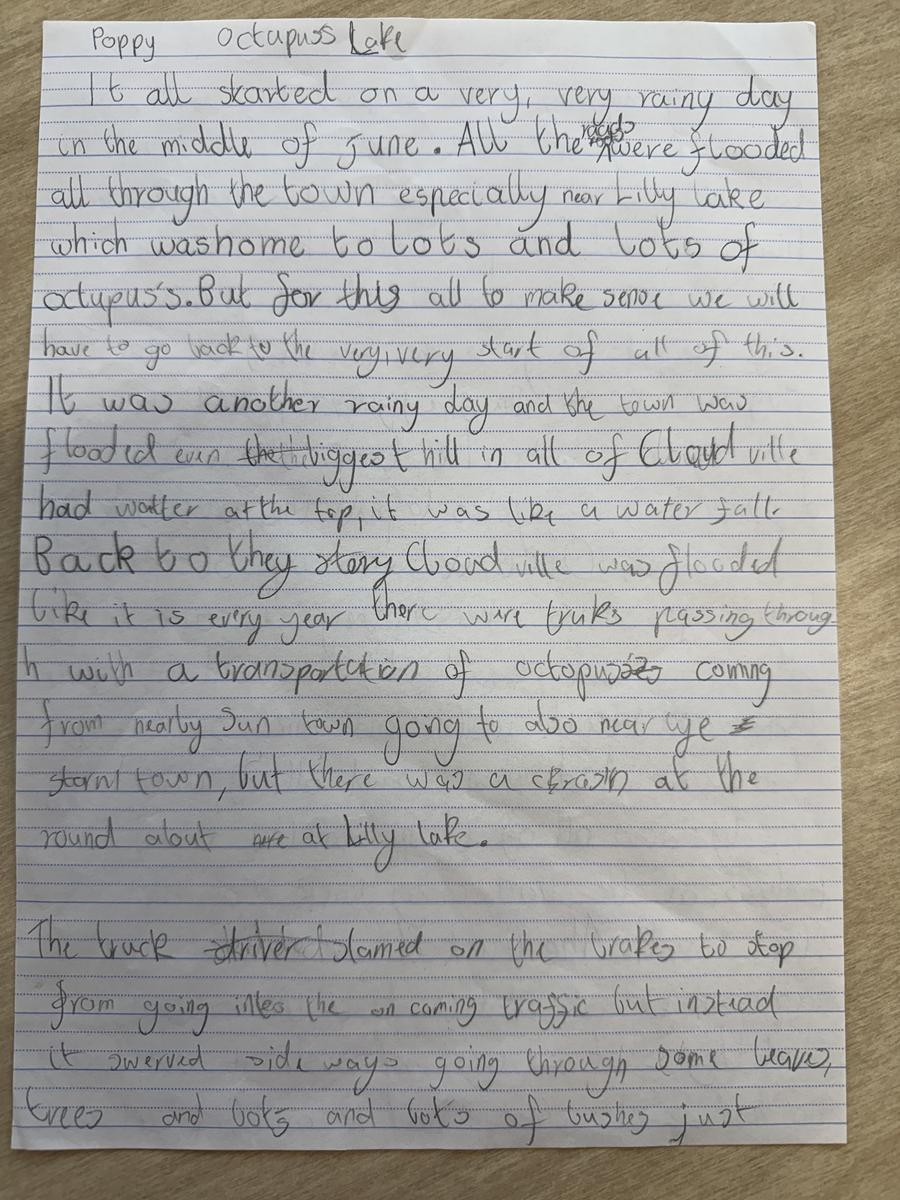 Poppy Octapuss Lake
It all skarted on a very, very rainy day
in the middle of june. All the roads were flooded
all through the town especially near Lilly lake
which was home to lots and lots of
octupus's. But for this all to make sense we will
have to go back to the very, very start of all of this.
It was another rainy day and the town was
flooded even biggest hill in all of Cloud ville
had watter at the top, it was like a water fall.
Back to they story Cloud ville was flooded
like it is every year there were truks passing throug
h with a transportation of octopuss coming
from nearby Sun town going to also near
storm town, but there was a at the
round about at Lilly lake.
The truck slamed on the brakes to stop
from going the on coming traffic but instead
it swerved side ways going through some leaves,
trees and lots and lots of bushes just